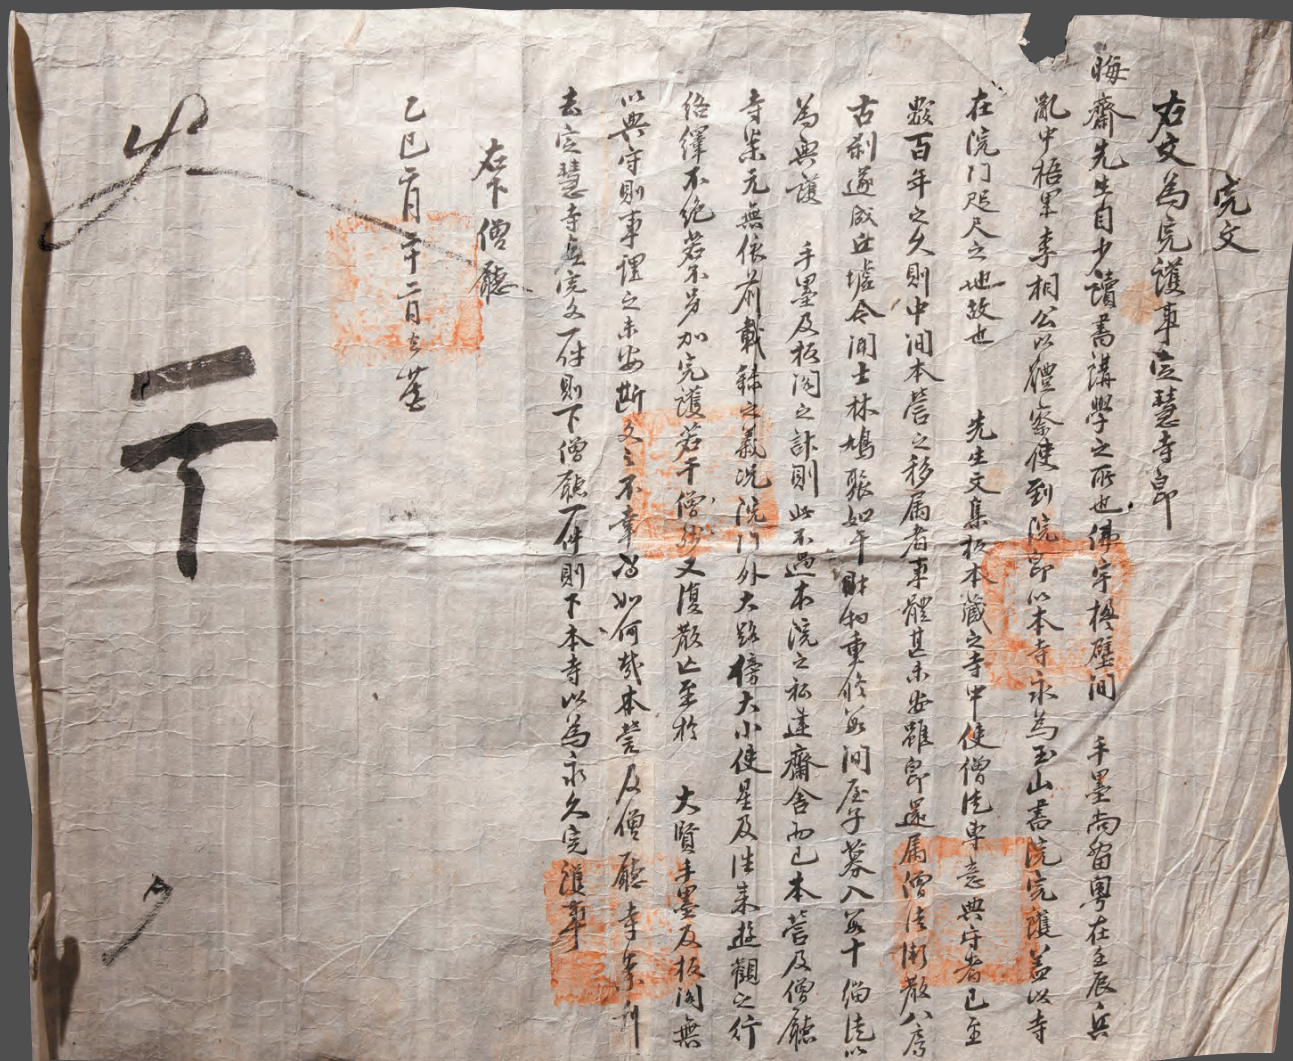 完文
右文爲完護事定慧寺卽
晦齋先生自少讀書講學之所也佛宇楹壁間 手墨尙留粤在壬辰兵
亂中梧里李相公以軆察使到院卽以本寺永爲玉山書院完護盖以寺
在院門咫尺之地故也 先生文集板本藏之寺中使僧徒專意典守者已至
數百年之久則中間本營之移属者事體甚未安雖卽還属僧徒渐散八
古刹遂成丘墟今聞士林鳩聚如干財物重修數間屋子募入數十緇徒以
爲典護 手墨及板閣之計則此不過本院之私建齋舍而已本營及僧廳
寺案元無依前載錄之義況院門外大路傍大小使星及往來遊觀之行
絡繹不絶若不另加完護若干僧徒又復散亡至於 大賢手墨及板閣無
以典守則事理之未安斯文之不幸爲如何哉本營及僧廳寺案
去定慧寺無完文一件則下僧廳一件則下本寺以爲永久完護事
右下僧廳
乙巳二月二十二日